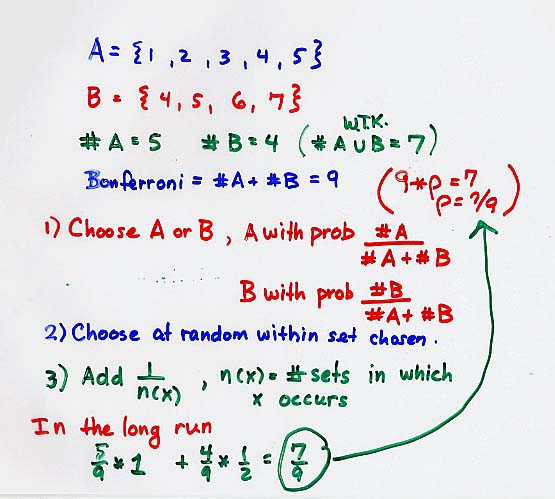 A = {1, 2, 3, 4, 5}
B = {4, 5, 6, 7}
#A = 5 #B = 4 (#A∪B = 7)
W.T.K.
Bonferroni = #A + #B = 9 (9*p = 7
p = 7/9)
1) Choose A or B, A with prob #A / #A + #B
B with prob #B / #A + #B
2) Choose at random within set chosen.
3) Add 1/n(x), n(x) = # sets in which
x occurs
In the long run
5/9 * 1 + 4/9 * 1/2 = 7/9